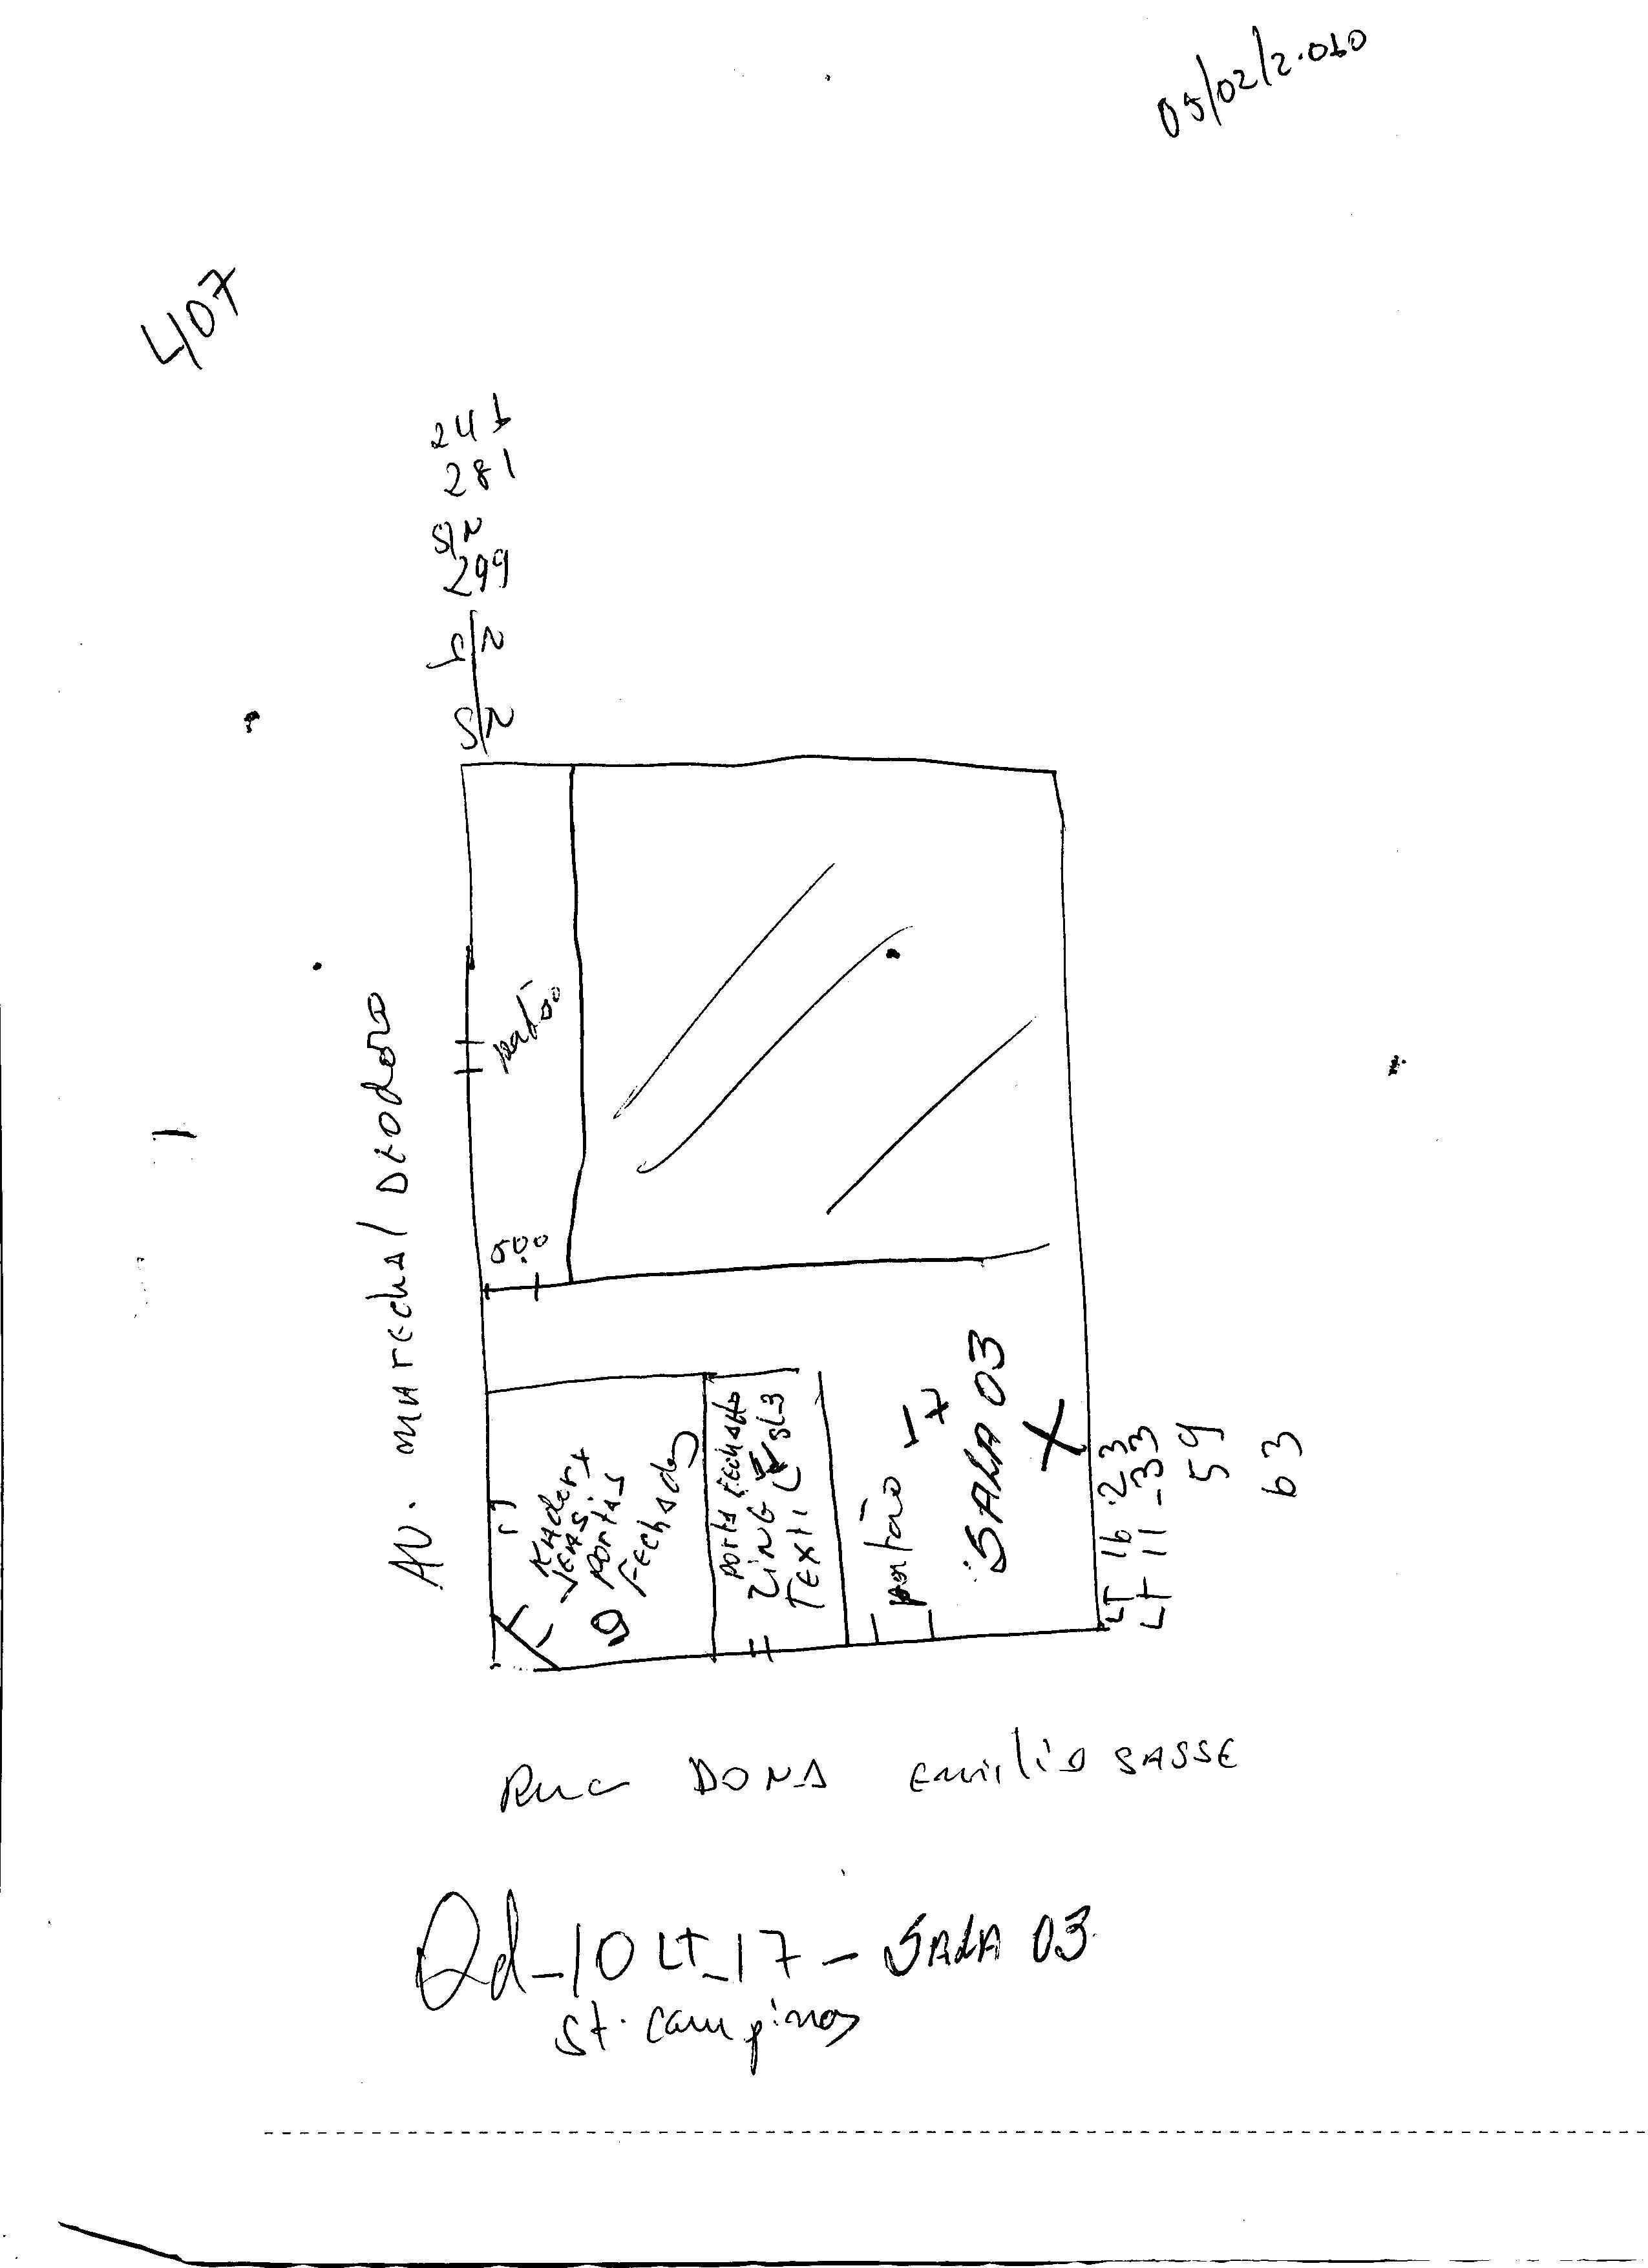 05/02/2.010
407
241
281
S/N
299
S/N
S/N
AV. MARECHAL DEODORO
portão
5,00
KADERX
JEANS
PORTAS
FECHADAS
PORTA FECHADA
ZING
TEXTIL SL-3
portão
17
SALA 03
X
LT 16 - 23
LT 11 - 33
59
63
Rua DONA Emilia SASSE
Qd_10 LT_17 - SALA 03
St. Campinas